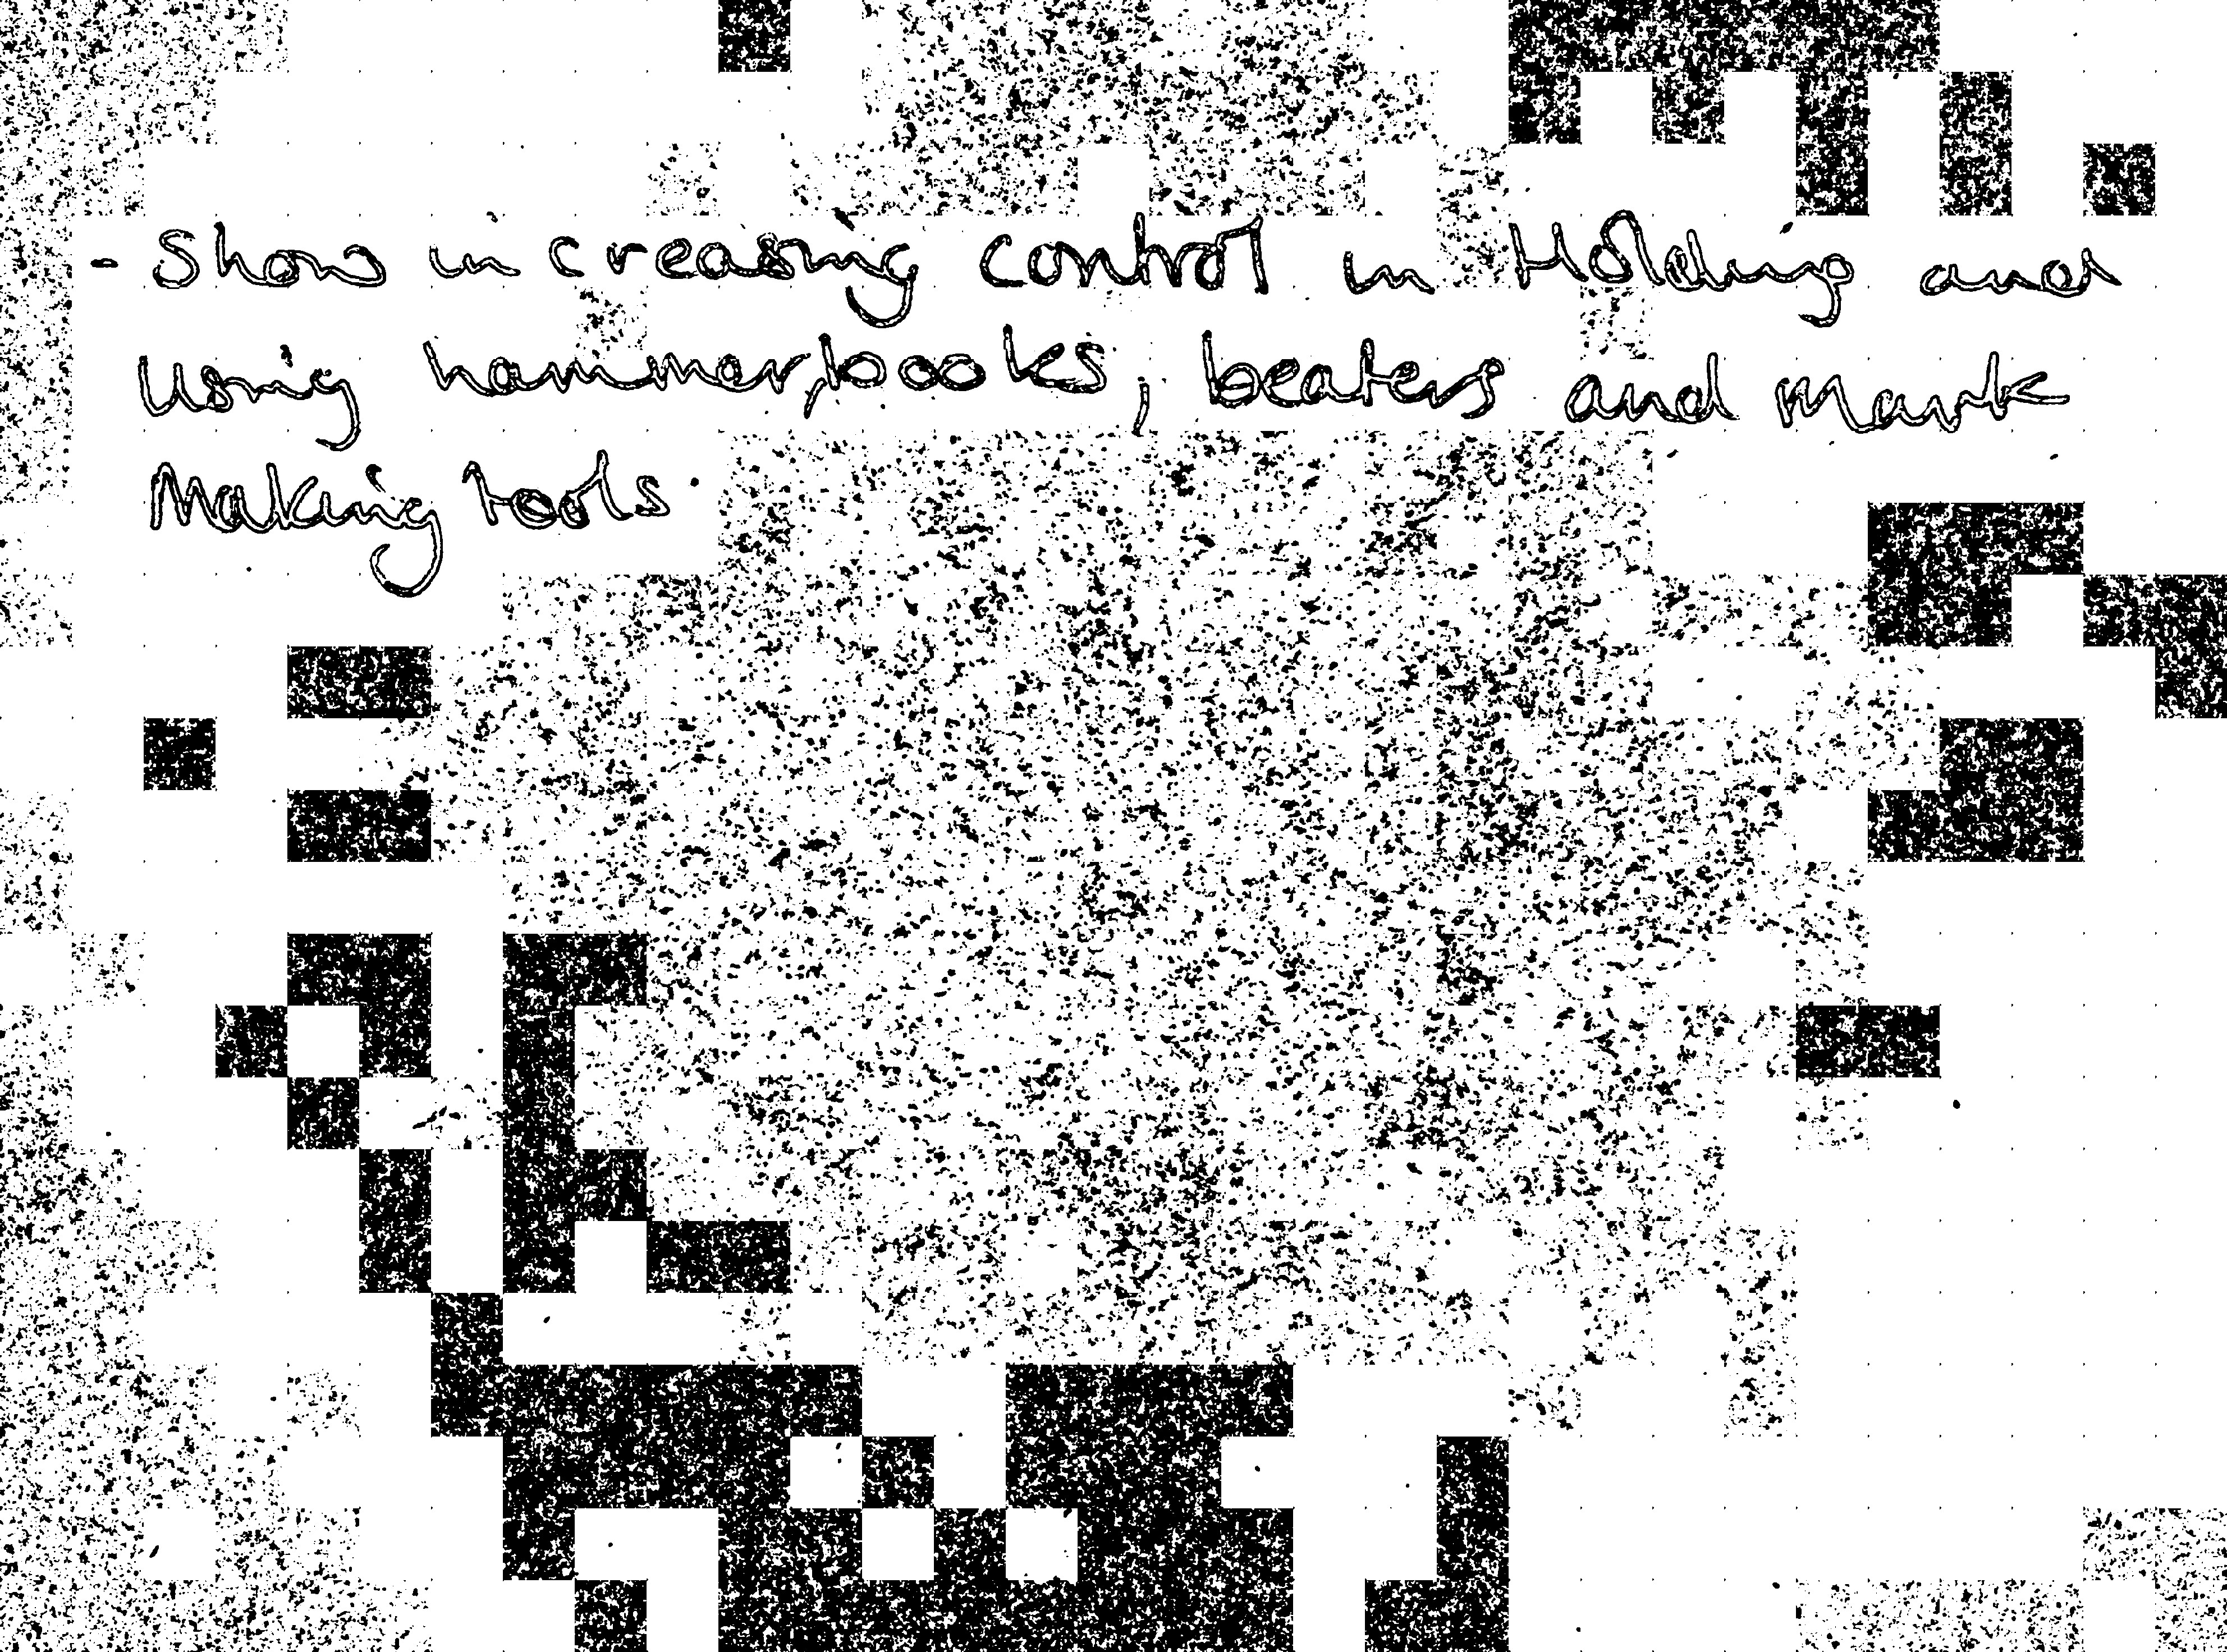 - Show increasing control in Holding and
Using hammer, books, beaters and Mark
Making tools.